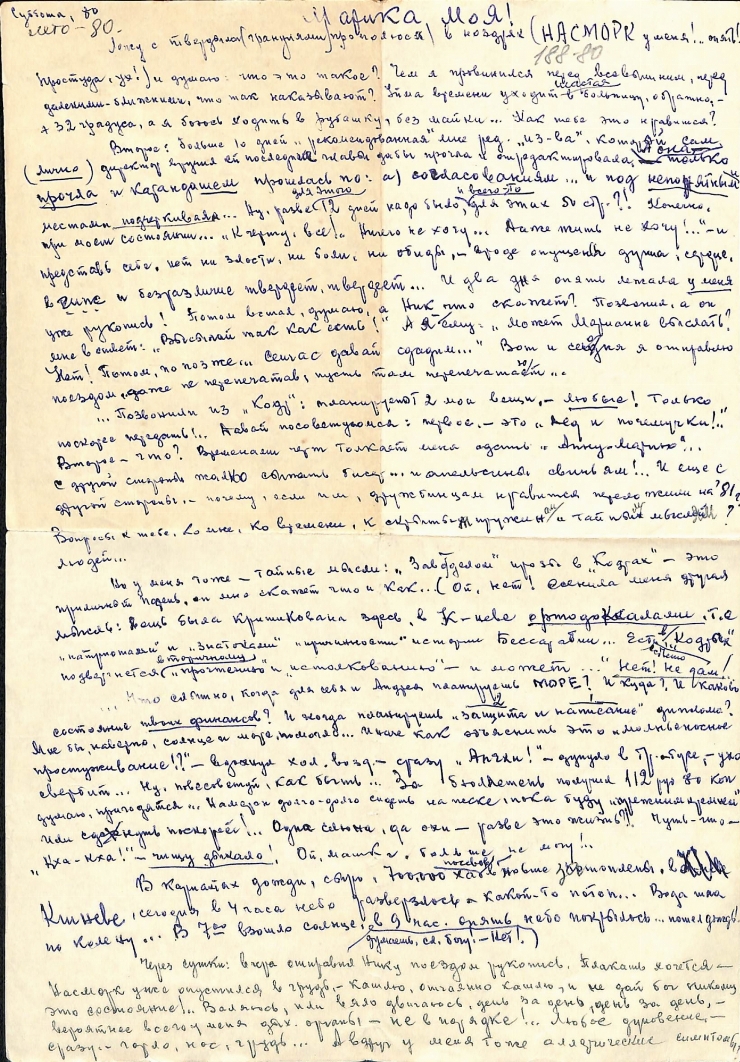 Суббота, 80
лето-80.
Марика моя!
Хожу с твердыми (гранулами) прополюса) в ноздрях (НАСМОРК у меня!.. опять!
188-80
Простуда, ух!) и думаю: что это такое? Чем я провинился перед всевышним, перед
далекими-ближними, что так наказывают? Уйма времени уходит в больницу, обратно,-
+ 32 градуса, а я боюсь ходить в рубашку, без майки... Как тебе это нравится?
Второе: больше 10 дней „рекомендованная" мне ред. „из-ва", которой сам
(лично) директор вручил ей последние главы дабы прочла и отредактировала, только
прочла и карандашем прошлась по: а) согласованиям... и под непонятным
местами подчеркивая... Ну, разве для этого 12 дней надо было, и всего-то для этих 50 стр.?! Конечно,
при моем состоянии... „К черту, все! Ничего не хочу... Даже жить не хочу!.."- и
представь себе, нет ни злости, ни боли, ни обиды,- вроде опущения души, сердце,
в и безразличие твердеет, твердеет... И два дня опять лежала у меня
уже рукопись! Потом встал, думаю, а Ник что скажет? Позвонил, а он
мне в ответ: „Высылай так как есть!" А я ему: „может Марианне выслать?
Нет! Потом, по позже... сейчас давай сдадим..." Вот и я отправлю
поездом, даже не перепечатав, пусть там перепечатают...
... Позвонили из „Кодр": планируют 2 мои вещи,- любые! Только
поскорее передать!... Давай посоветуемся: первое,- это „Лед и почемучки!"
Второе- что? Временами черт толкает меня сдать „Анну-Марию"...
С другой стороны жалко сыпать бисер... и апельсины свиньям!... И еще с
другой стороны,- почему, если им, дружбинцам нравится переложили на '81г
Вопросы к тебе, ко мне, ко времени, к скрытым пружинам и тайным мыслям ?
людей...
Но у меня тоже- тайные мысли: „Завотделом" прозы в „Кодрах"- это
приличный парень, он мне скажет что и как... (Ой, нет! Осенила меня другая
мысль: вещь была критикована здесь, в К-неве ортодоксалами, т.е
„патриотами" и „знатоками" „причинности" истории Бессарабии... Если в „Кодрах"
подвергнется вторичному „прочтению" и „истолкованию"- и может ..." Нет! Не дам!
... Что слышно, когда для себя и Андрея планируешь МОРЕ? И куда?, И каково
состояние твоих финансов? И когда планируешь „защита и написание" диплома?
Мне бы, наверно, солнце и море, помогло... Иначе как объяснить это „молниеносное
простуживание!?"- вдохнул хол. возд.- сразу „Апчхи!"- дунуло в - ухо
свербит... Ну, посоветуй, как быть... За бюллетень получил 112 руб 80 коп
думаю, пригодятся... Намерен долго-долго сидеть на песке, пока буду „прежним-крепким"
или сдохнуть поскорей!... Одна слюна, да охи- разве это жизнь?! Чуть-что-
„Кха-кха!"- чищу дыхало! Ой, мать г, больше не могу!...
В Карпатах дожди, сыро, 700000 га посевов затоплены, в
Кишневе, сегодня в 4 часа небо разверзлось и какой-то потоп... Вода шла
по колену... В 7⁰⁰ взошло солнце, в 9 час. опять небо покрылось... пошел дождь!
(думаешь, сл. богу!- Нет!)
Через сутки: вчера отправил Нику поездом рукопись. Плакать хочется-
Насморк уже опустился в грудь,- кашлю, отчаянно кашлю, и не дай бог никому
это состояние!... Валяюсь, или вяло двигаюсь, день за день, день за день,-
вероятнее всего у меня дых. органы- не в порядке!... Любое дуновение,-
сразу- горло, нос, грудь... А вдруг у меня тоже аллергические симптомы,